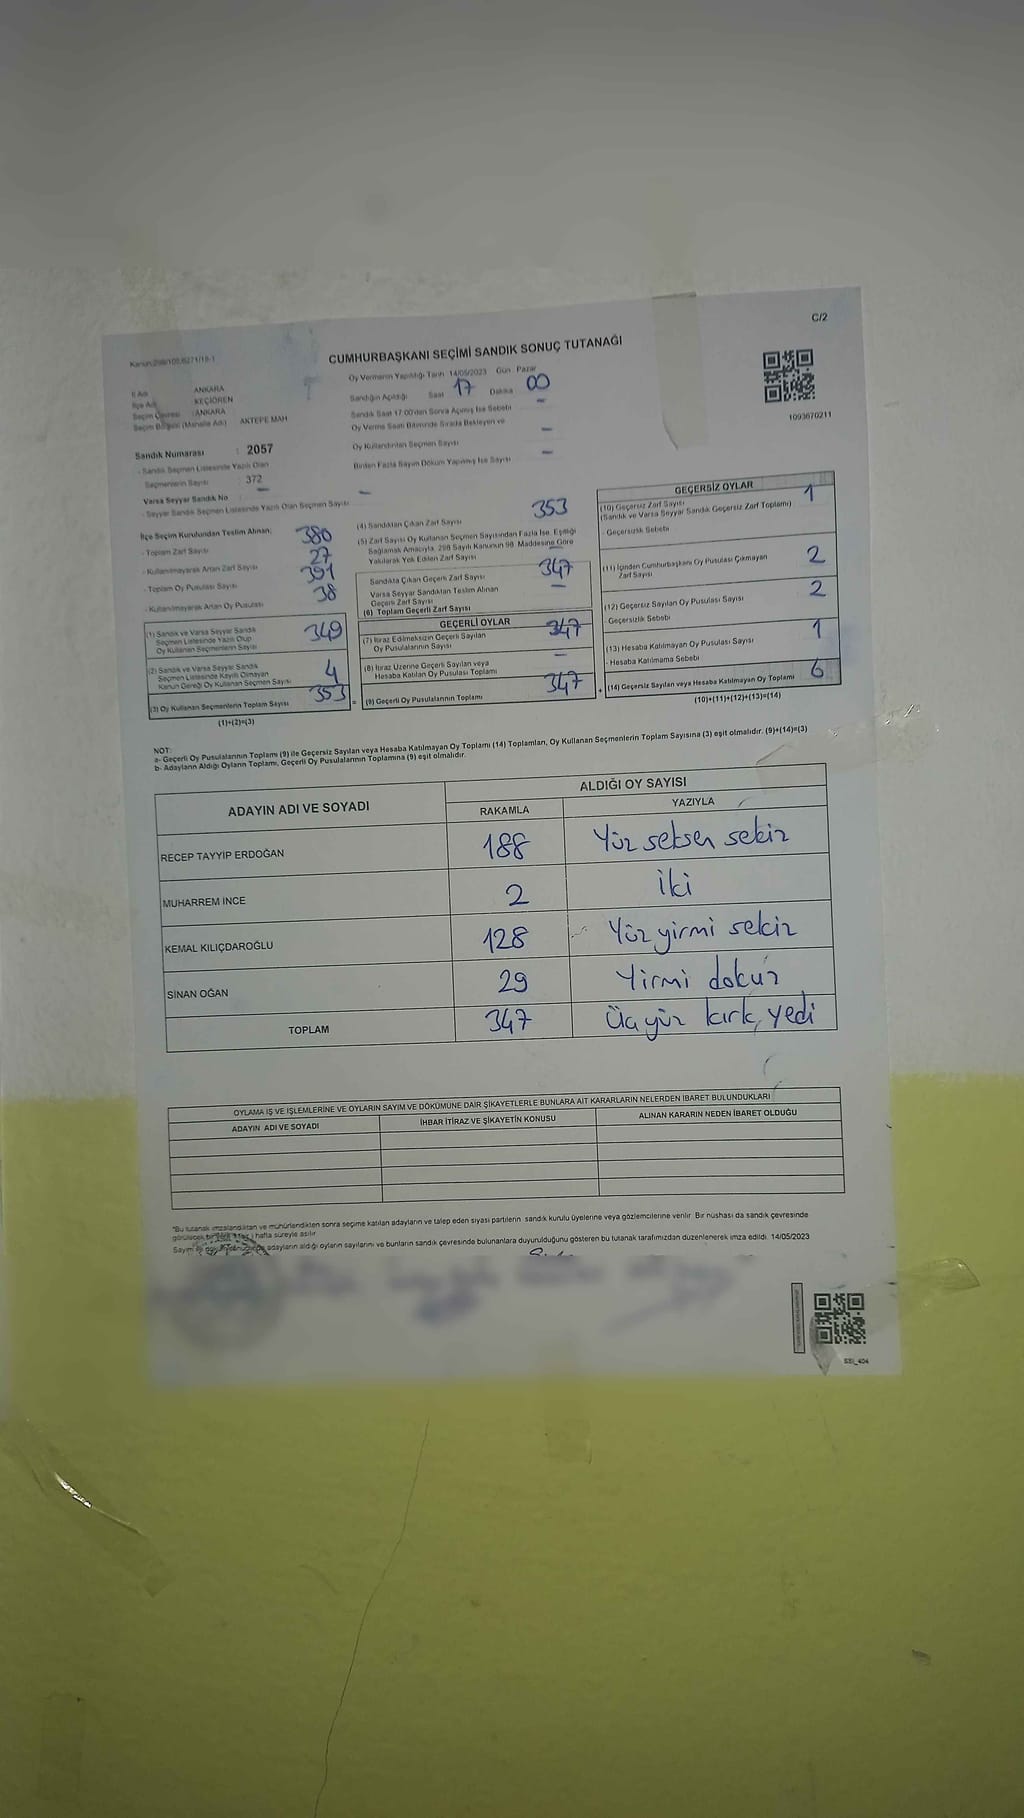 C/2
Kanun:298/105,6271/18-1
CUMHURBAŞKANI SEÇİMİ SANDIK SONUÇ TUTANAĞI
İl Adı ANKARA
İlçe Adı KEÇİÖREN
Seçim Çevresi : ANKARA
Seçim Bölgesi (Mahalle Adı) AKTEPE MAH
Sandık Numarası : 2057
- Sandık Seçmen Listesinde Yazılı Olan
Seçmenlerin Sayısı : 372
Varsa Seyyar Sandık No –
- Seyyar Sandık Seçmen Listesinde Yazılı Olan Seçmen Sayısı –
Oy Vermenin Yapıldığı Tarih 14/05/2023 Gün Pazar
Sandığın Açıldığı Saat 17 Dakika 00
Sandık Saat 17:00'den Sonra Açılmış İse Sebebi –
Oy Verme Saati Bitiminde Sırada Bekleyen ve
Oy Kullandırılan Seçmen Sayısı –
Birden Fazla Sayım Döküm Yapılmış İse Sayısı –
1093670211
İlçe Seçim Kurulundan Teslim Alınan;
- Toplam Zarf Sayısı 380
- Kullanılmayarak Artan Zarf Sayısı 27
- Toplam Oy Pusulası Sayısı 391
- Kullanılmayarak Artan Oy Pusulası 38
(1) Sandık ve Varsa Seyyar Sandık
Seçmen Listesinde Yazılı Olup
Oy Kullanan Seçmenlerin Sayısı 349
(2) Sandık ve Varsa Seyyar Sandık
Seçmen Listesinde Kayıtlı Olmayan
Kanun Gereği Oy Kullanan Seçmen Sayısı 4
(3) Oy Kullanan Seçmenlerin Toplam Sayısı 353
(1)+(2)=(3)
(4) Sandıktan Çıkan Zarf Sayısı 353
(5) Zarf Sayısı Oy Kullanan Seçmen Sayısından Fazla İse, Eşitliği
Sağlamak Amacıyla, 298 Sayılı Kanunun 98. Maddesine Göre
Yakılarak Yok Edilen Zarf Sayısı –
Sandıkta Çıkan Geçerli Zarf Sayısı 347
Varsa Seyyar Sandıktan Teslim Alınan
Geçerli Zarf Sayısı –
(6) Toplam Geçerli Zarf Sayısı
GEÇERLİ OYLAR
(7) İtiraz Edilmeksizin Geçerli Sayılan
Oy Pusulalarının Sayısı 347
(8) İtiraz Üzerine Geçerli Sayılan veya
Hesaba Katılan Oy Pusulası Toplamı –
(9) Geçerli Oy Pusulalarının Toplamı 347
GEÇERSİZ OYLAR
(10) Geçersiz Zarf Sayısı 1
(Sandık ve Varsa Seyyar Sandık Geçersiz Zarf Toplamı)
- Geçersizlik Sebebi
(11) İçinden Cumhurbaşkanı Oy Pusulası Çıkmayan
Zarf Sayısı 2
(12) Geçersiz Sayılan Oy Pusulası Sayısı 2
- Geçersizlik Sebebi
(13) Hesaba Katılmayan Oy Pusulası Sayısı 1
- Hesaba Katılmama Sebebi
(14) Geçersiz Sayılan veya Hesaba Katılmayan Oy Toplamı 6
(10)+(11)+(12)+(13)=(14)
NOT:
a- Geçerli Oy Pusulalarının Toplamı (9) ile Geçersiz Sayılan veya Hesaba Katılmayan Oy Toplamı (14) Toplamları, Oy Kullanan Seçmenlerin Toplam Sayısına (3) eşit olmalıdır. (9)+(14)=(3)
b- Adayların Aldığı Oyların Toplamı, Geçerli Oy Pusulalarının Toplamına (9) eşit olmalıdır.
ADAYIN ADI VE SOYADI ALDIĞI OY SAYISI
RAKAMLA YAZIYLA
RECEP TAYYIP ERDOĞAN 188 Yüz seksen sekiz
MUHARREM İNCE 2 iki
KEMAL KILIÇDAROĞLU 128 Yüz yirmi sekiz
SİNAN OĞAN 29 Yirmi dokuz
TOPLAM 347 Üç yüz kırk yedi
OYLAMA İŞ VE İŞLEMLERİNE VE OYLARIN SAYIM VE DÖKÜMÜNE DAİR ŞİKAYETLERLE BUNLARA AİT KARARLARIN NELERDEN İBARET BULUNDUKLARI
ADAYIN ADI VE SOYADI İHBAR İTİRAZ VE ŞİKAYETİN KONUSU ALINAN KARARIN NEDEN İBARET OLDUĞU
"Bu tutanak imzalandıktan ve mühürlendikten sonra seçime katılan adayların ve talep eden siyasi partilerin sandık kurulu üyelerine veya gözlemcilerine verilir. Bir nüshası da sandık çevresinde
görülecek bir hafta süreyle asılır.
adayların aldığı oyların sayılarını ve bunların sandık çevresinde bulunanlara duyurulduğunu gösteren bu tutanak tarafımızdan düzenlenerek imza edildi. 14/05/2023
SSI_404